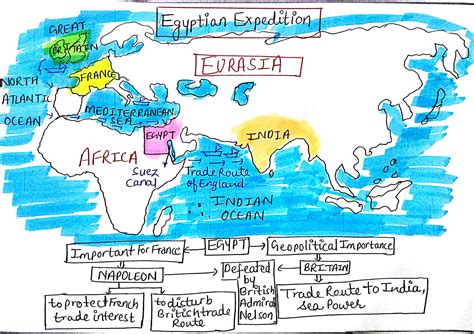 Egyptian Expedition
GREAT
BRITAIN
EURASIA
FRANCE
NORTH
ATLANTIC
OCEAN
MEDITERRANEAN
SEA
EGYPT
INDIA
AFRICA
Suez
Canal
Trade Route
of England
INDIAN
OCEAN
Important for France
EGYPT
Geopolitical Importance
NAPOLEON
Defeated
by
British
Admiral
Nelson
BRITAIN
to protect French
trade interest
to disturb
British trade
Route
Trade Route to India,
sea Power